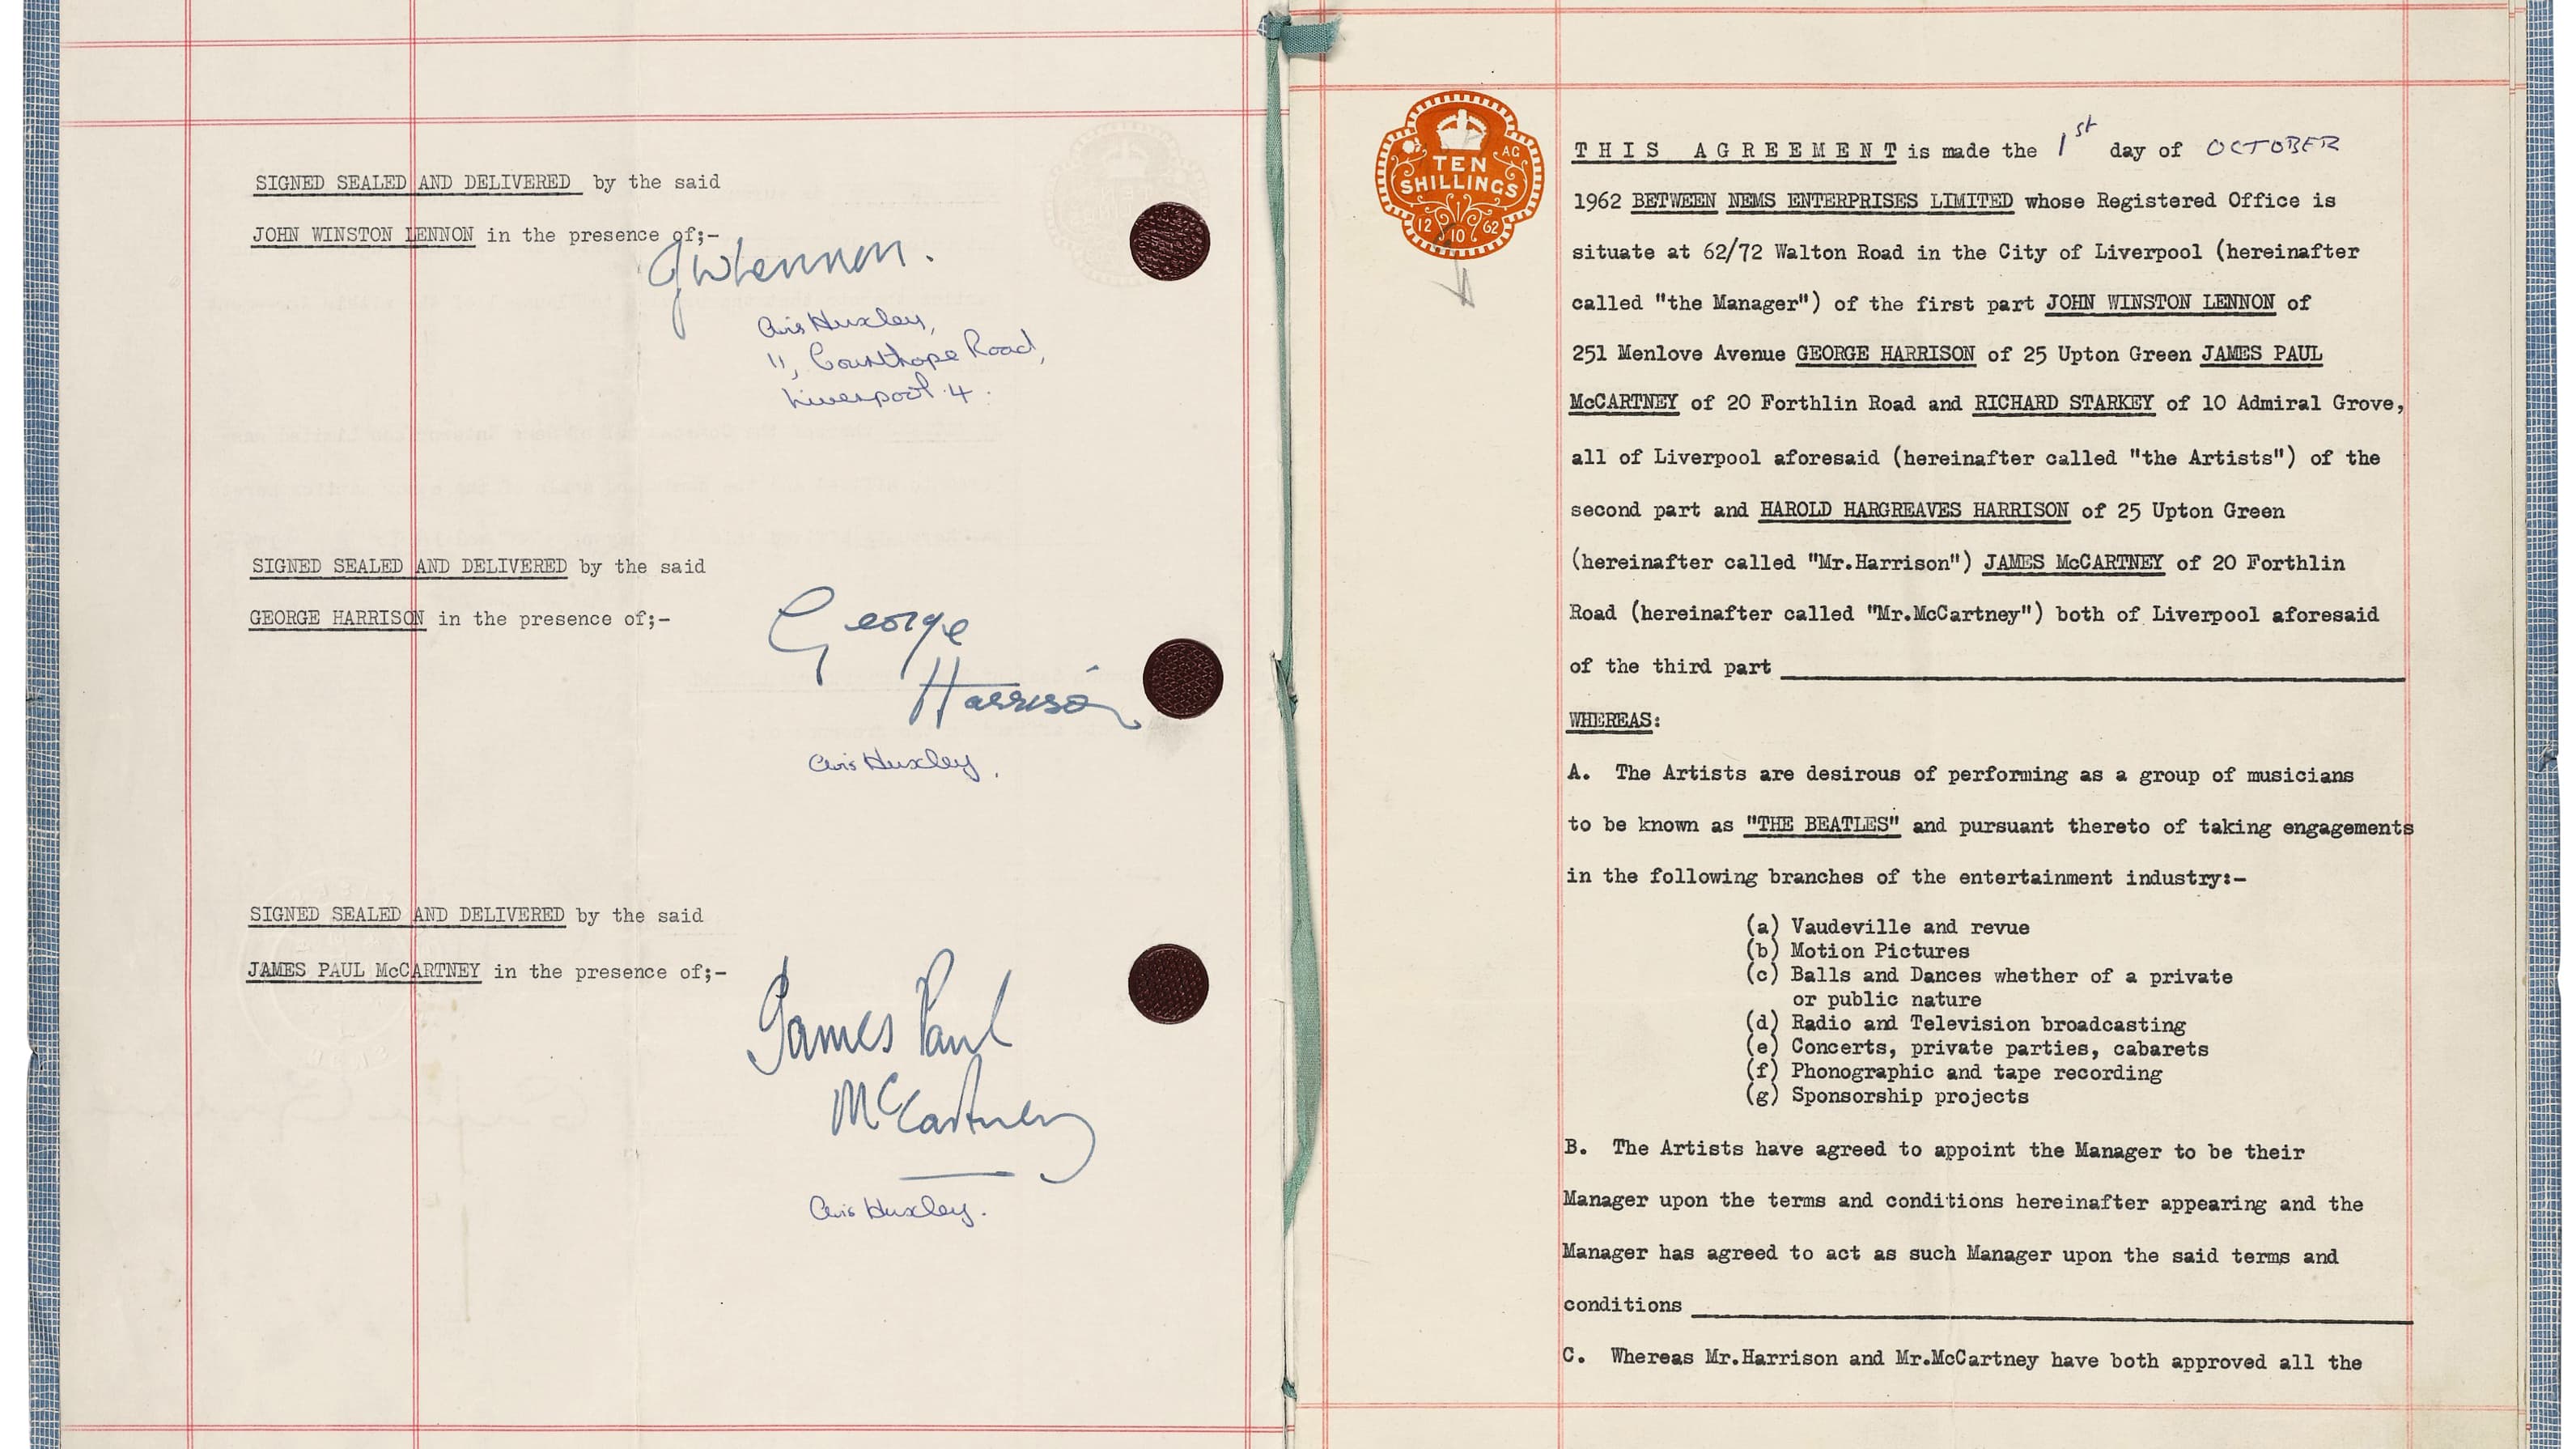 SIGNED SEALED AND DELIVERED by the said
JOHN WINSTON LENNON in the presence of;-
JWLennon.
Avis Huxley,
11, Courthope Road,
Liverpool 4.
SIGNED SEALED AND DELIVERED by the said
GEORGE HARRISON in the presence of;-
George
Harrison
Avis Huxley.
SIGNED SEALED AND DELIVERED by the said
JAMES PAUL McCARTNEY in the presence of;-
James Paul
McCartney
Avis Huxley.
TEN
AG
SHILLINGS
12 10 62
THIS AGREEMENT is made the 1st day of OCTOBER
1962 BETWEEN NEMS ENTERPRISES LIMITED whose Registered Office is
situate at 62/72 Walton Road in the City of Liverpool (hereinafter
called "the Manager") of the first part JOHN WINSTON LENNON of
251 Menlove Avenue GEORGE HARRISON of 25 Upton Green JAMES PAUL
McCARTNEY of 20 Forthlin Road and RICHARD STARKEY of 10 Admiral Grove,
all of Liverpool aforesaid (hereinafter called "the Artists") of the
second part and HAROLD HARGREAVES HARRISON of 25 Upton Green
(hereinafter called "Mr.Harrison") JAMES McCARTNEY of 20 Forthlin
Road (hereinafter called "Mr.McCartney") both of Liverpool aforesaid
of the third part
WHEREAS:
A. The Artists are desirous of performing as a group of musicians
to be known as "THE BEATLES" and pursuant thereto of taking engagements
in the following branches of the entertainment industry:-
(a) Vaudeville and revue
(b) Motion Pictures
(c) Balls and Dances whether of a private
or public nature
(d) Radio and Television broadcasting
(e) Concerts, private parties, cabarets
(f) Phonographic and tape recording
(g) Sponsorship projects
B. The Artists have agreed to appoint the Manager to be their
Manager upon the terms and conditions hereinafter appearing and the
Manager has agreed to act as such Manager upon the said terms and
conditions
C. Whereas Mr.Harrison and Mr.McCartney have both approved all the